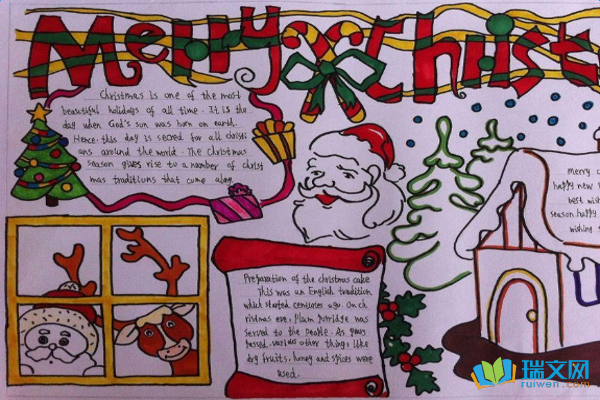 Merry Christ
Christmas is one of the most
beautiful holidays of all time. It is the
day when God's son was born on earth.
Hence this day is secred for all christi
ans around the world. The Christmas
season gives rise to a number of christ
mas traditions that cump along
Preparation of the christmas cake
This was an English tradition
which started centuries ago. On ch
ristmas eve, Plum porridge was
served to the people. As years
passed, various other things like
dry fruits, honey and spices were
used.
merry c
happy new
best wish
season.happy
wishing
瑞文网
ruiwen.com